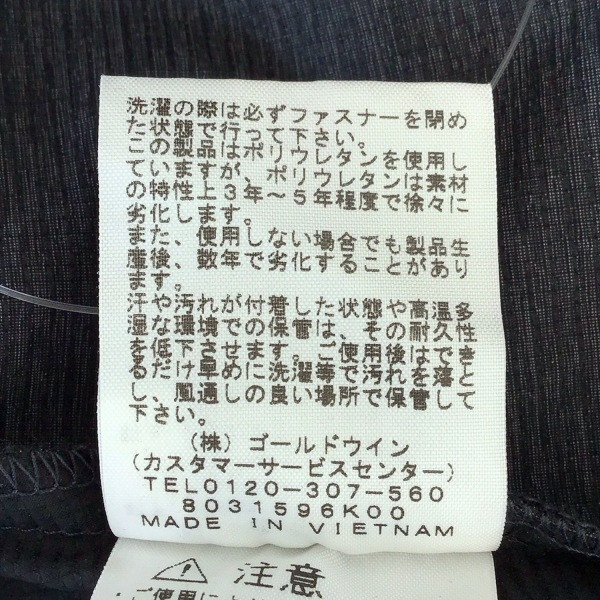 洗濯の際は必ずファスナーを閉め
た状態で行って下さい。
この製品はポリウレタンを使用し
ていますが、ポリウレタンは素材
の特性上3年～5年程度で徐々に
劣化します。
また、使用しない場合でも製品生
産後、数年で劣化することがあり
ます。
汗や汚れが付着した状態や高温多
湿な環境での保管は、その耐久性
を低下させます。ご使用後はでき
るだけ早めに洗濯等で汚れを落と
し、風通しの良い場所で保管して
下さい。
(株) ゴールドウイン
(カスタマーサービスセンター)
TEL0120-307-560
8031596K00
MADE IN VIETNAM
注意